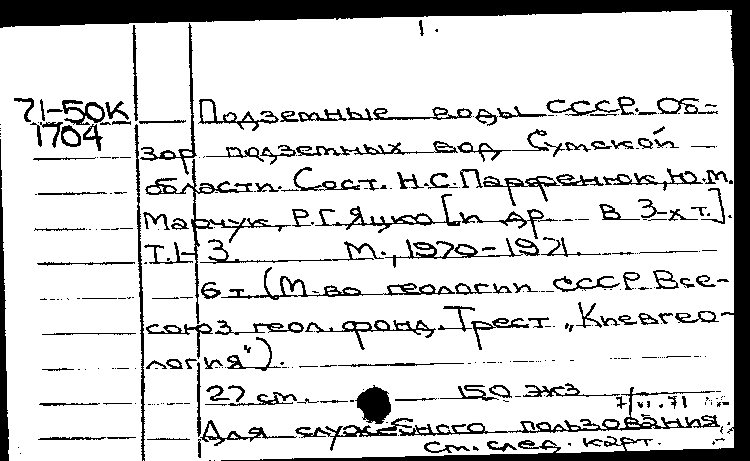 1.
71-50К
1704
Подземные воды СССР. Об-
зор подземных вод Сумской
области. Сост. Н.С. Парфенюк, Ю.М.
Марчук, Р.Г. Яцко [и др. В 3-х т.].
Т.1-3. М., 1970-1971.
6 т. (М-во геологии СССР. Все-
союз. геол. фонд. Трест „Киевгео-
логия").
27 см. 150 экз
7/VI.71
Для служебного пользования.
См. след. карт.